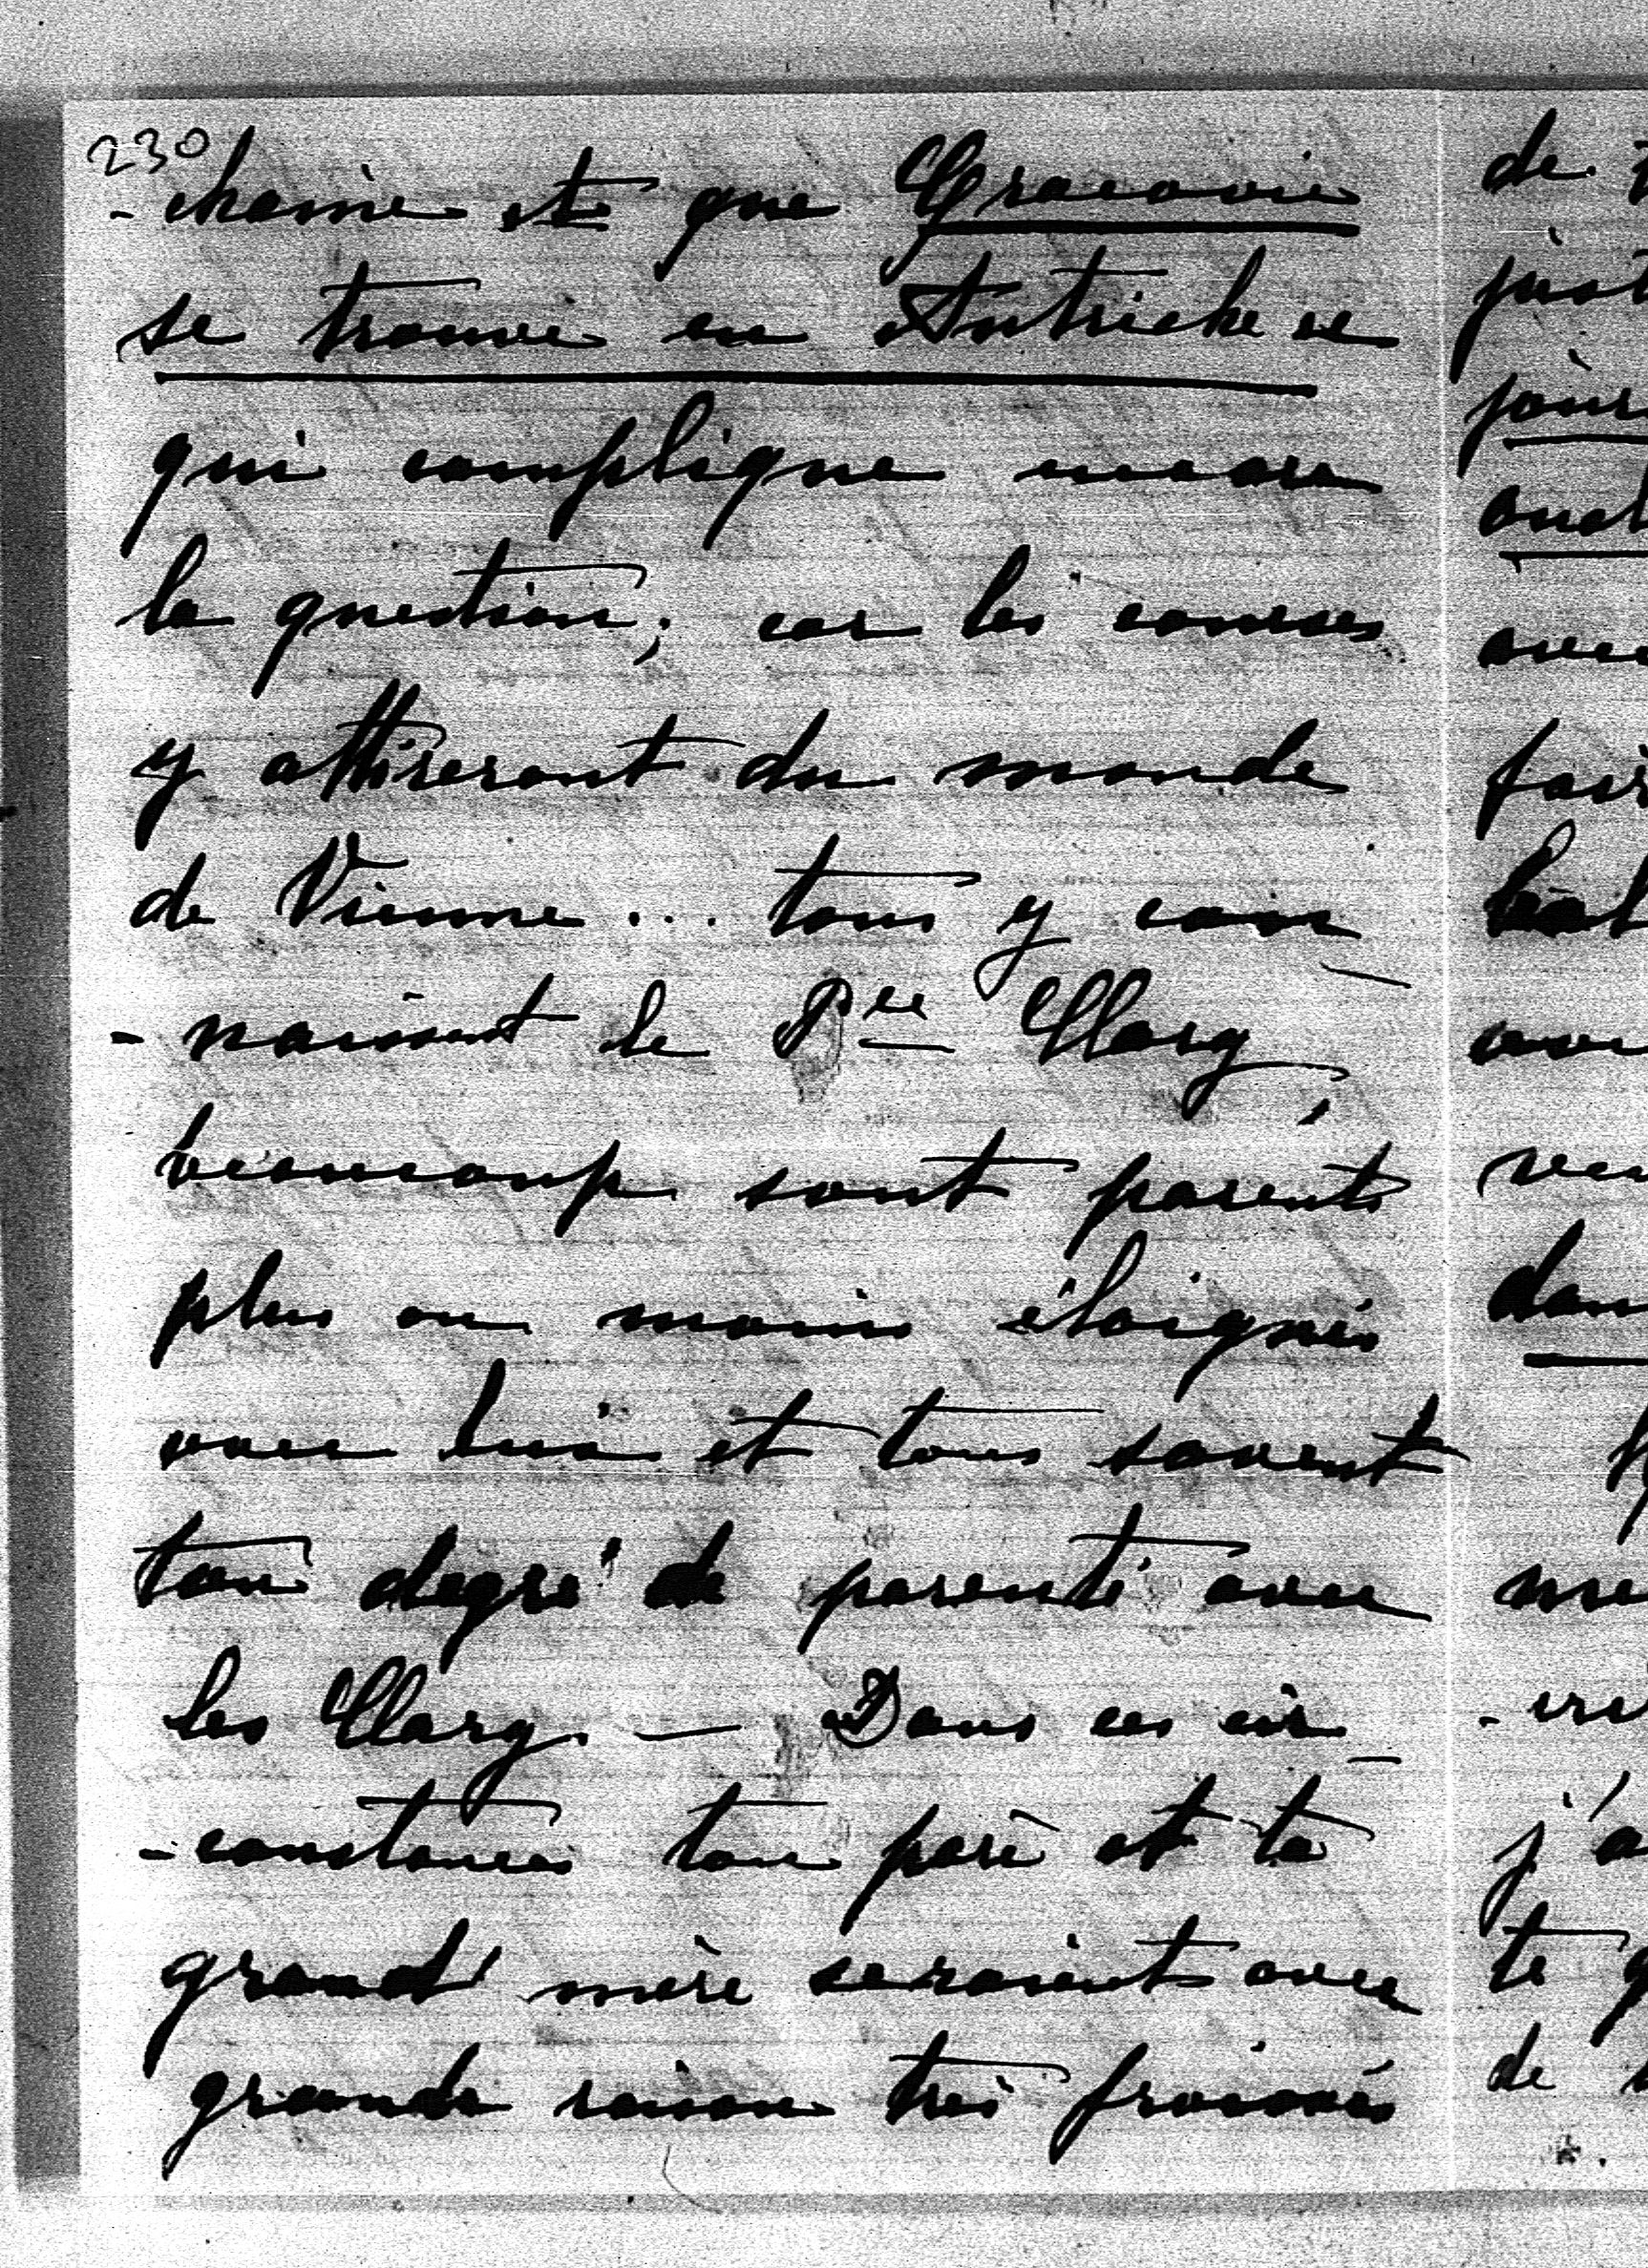 230
-chaine et que Cracovie
se trouve en Autriche ce
qui complique encore
la question; car les courses
y attireront du monde
de Vienne... tous y con-
-naissent le Pce Clary
beaucoup sont parents
plus ou moins éloignés
avec lui et tous savent
ton degré de parenté avec
les Clary. — Dans ces cir-
-constances ton père et ta
grand'mère seraient avec
grande raison très froissés
de
j'a
te
de